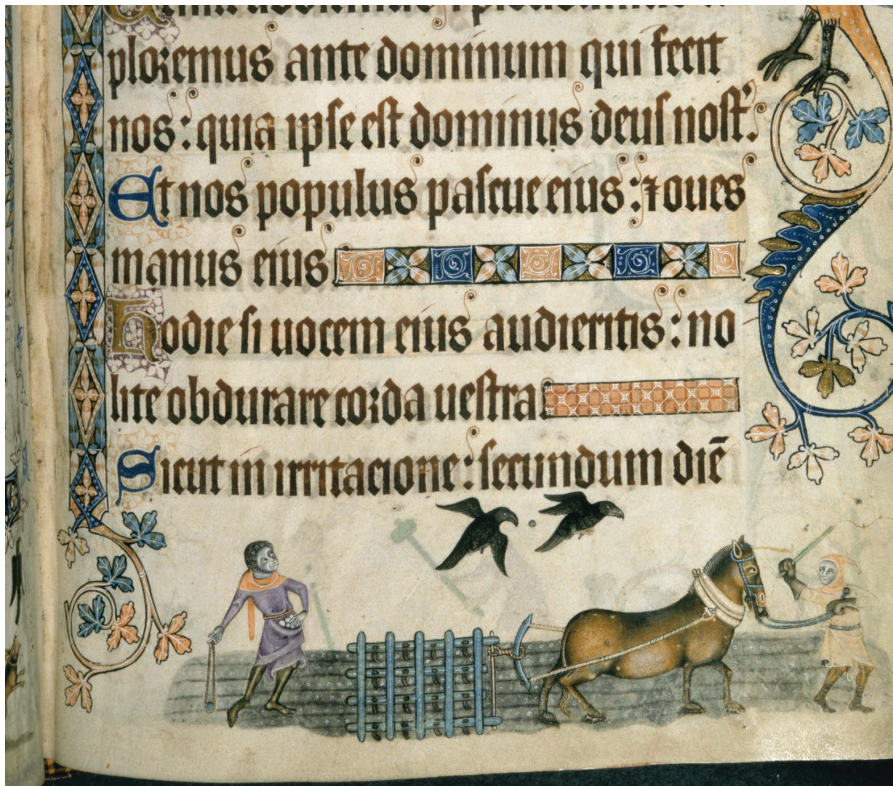 ploremus ante dominum qui fecit
nos: quia ipse est dominus deus nost'.
Et nos populus pascue eius: ⁊ oues
manus eius
Hodie si uocem eius audieritis: no
lite obdurare corda uestra.
Sicut in irritacione: secundum diē